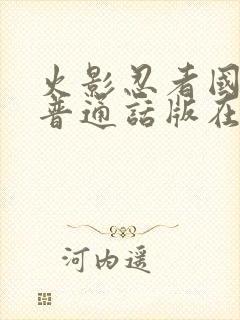 火影忍者國
普通話版在
河内遥